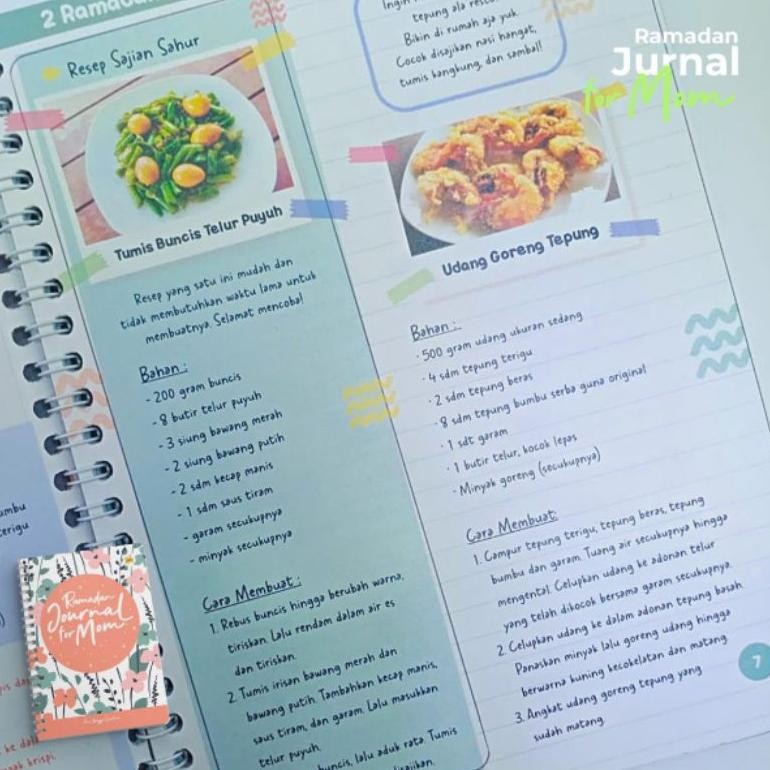 2 Ramadan
Resep Sajian Sahur
Tumis Buncis Telur Puyuh
Resep yang satu ini mudah dan
tidak membutuhkan waktu lama untuk
membuatnya. Selamat mencoba!
Bahan :
- 200 gram buncis
- 8 butir telur puyuh
- 3 siung bawang merah
- 2 siung bawang putih
- 2 sdm kecap manis
- 1 sdm saus tiram
- garam secukupnya
- minyak secukupnya
Cara Membuat :
1. Rebus buncis hingga berubah warna,
tiriskan. Lalu rendam dalam air es
dan tiriskan.
2. Tumis irisan bawang merah dan
bawang putih. Tambahkan kecap manis,
saus tiram, dan garam. Lalu masukkan
telur puyuh.
buncis, lalu aduk rata. Tumis
disajikan.
Ingin
tepung ala
Bikin di rumah aja yuk
Cocok disajikan nasi hangat,
tumis kangkung, dan sambal!
Udang Goreng Tepung
Bahan :
· 500 gram udang ukuran sedang
· 4 sdm tepung terigu
· 2 sdm tepung beras
· 8 sdm tepung bumbu serba guna original
· 1 sdt garam
· 1 butir telur, kocok lepas
· Minyak goreng (secukupnya)
Cara Membuat:
1. Campur tepung terigu, tepung beras, tepung
bumbu dan garam. Tuang air secukupnya hingga
mengental. Celupkan udang ke adonan telur
yang telah dikocok bersama garam secukupnya.
2. Celupkan udang ke dalam adonan tepung basah.
Panaskan minyak lalu goreng udang hingga
berwarna kuning kecokelatan dan matang.
3. Angkat udang goreng tepung yang
sudah matang.
7
Ramadan
Jurnal
for Mom
Ramadan
Journal
for Mom